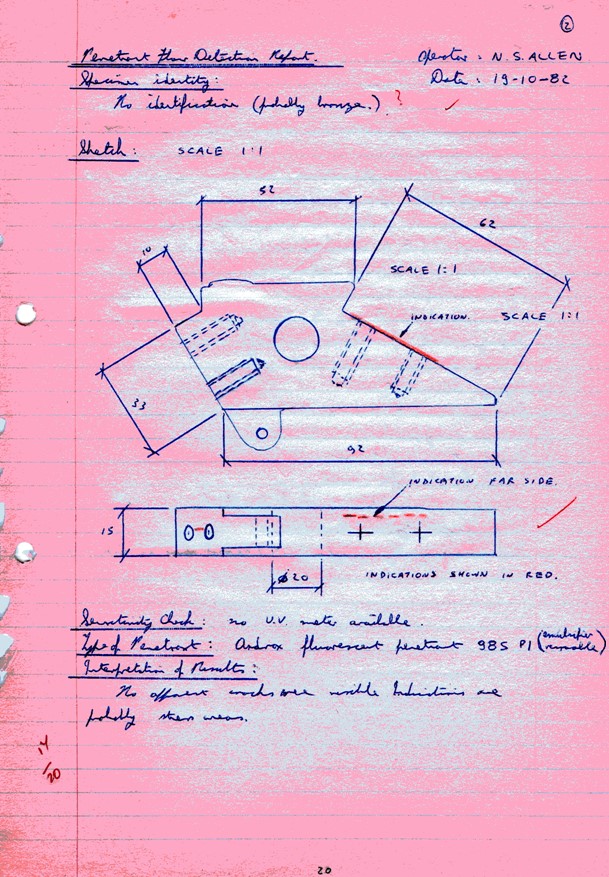 2
Penetrant Flaw Detection Report.
Operator : N.S. ALLEN
Specimen identity:
Date : 19-10-82
No identification (probably bronze.) ?
Sketch: SCALE 1:1
52
62
10
SCALE 1:1
INDICATION.
SCALE 1:1
33
92
INDICATION FAR SIDE.
15
Ø20
INDICATIONS SHOWN IN RED.
Sensitivity Check: no U.V. meter available.
Type of Penetrant: Ardrox fluorescent penetrant 985 P1 (emulsifier removable)
Interpretation of Results:
No apparent cracks were visible Indications are
probably stress areas.
14/20
20